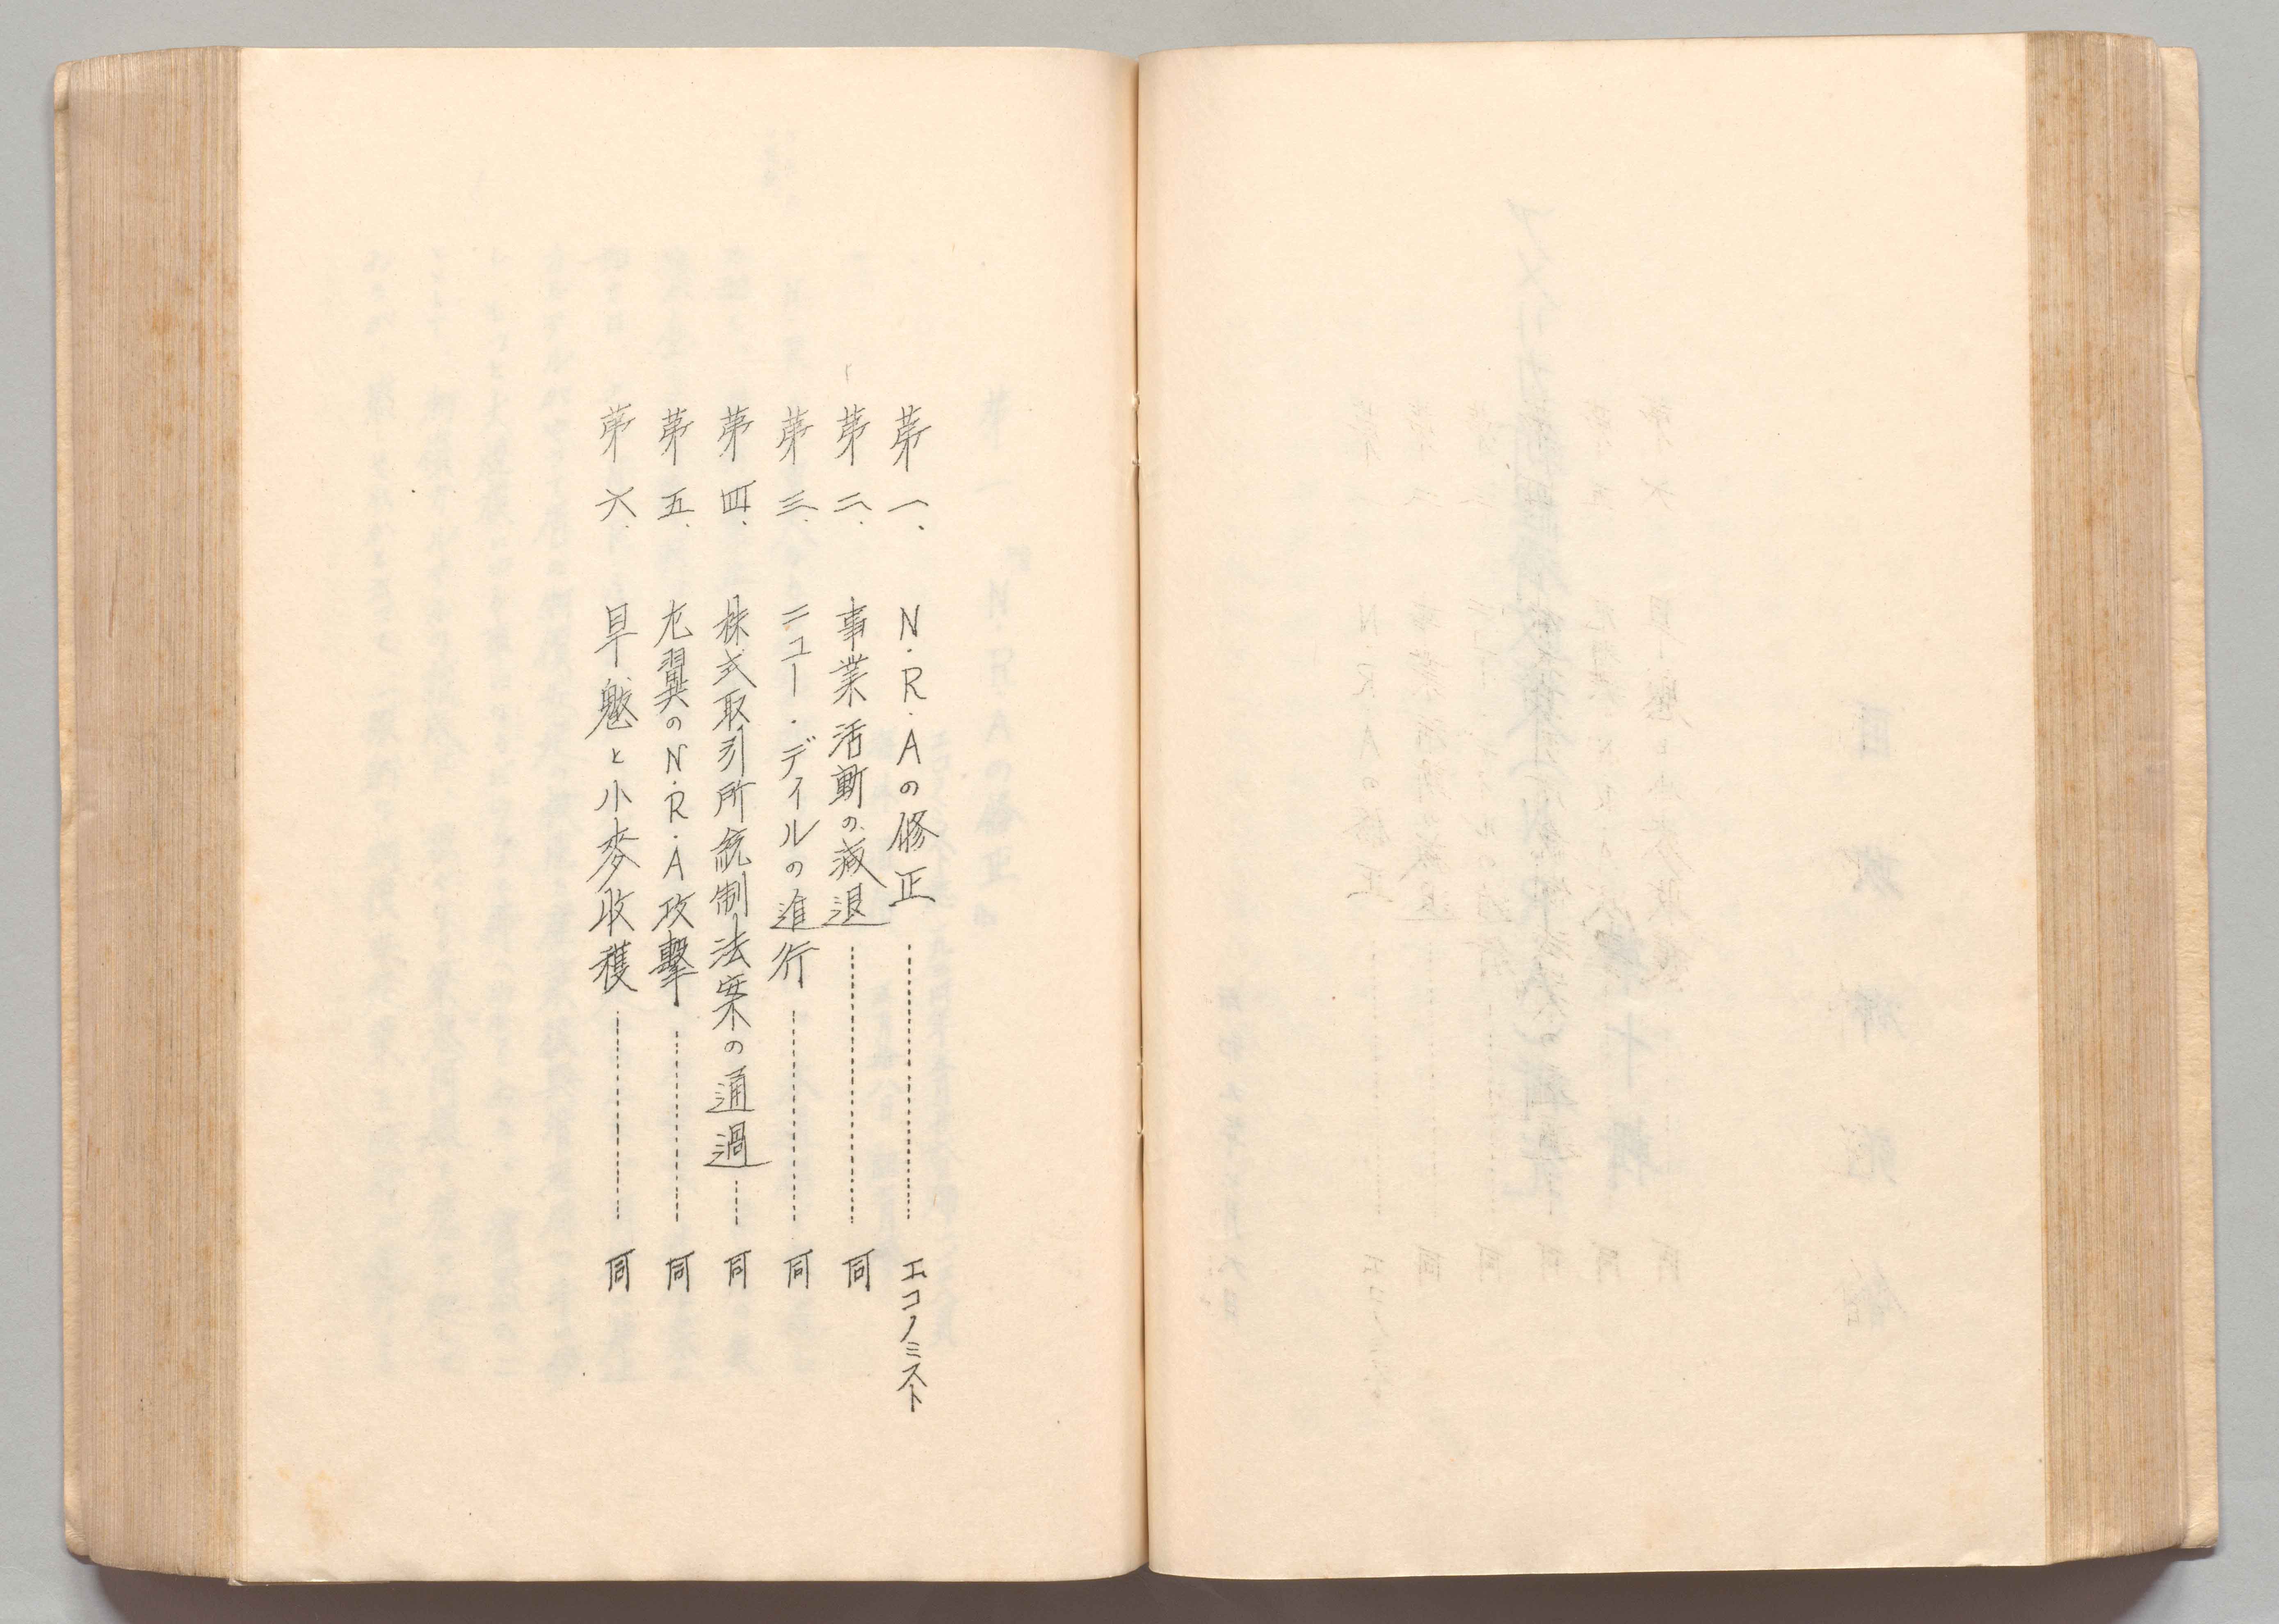 第一、 N・R・Aの修正 エコノミスト
第二、 事業活動の減退 同
第三、 ニュー・ディールの進行 同
第四、 株式取引所統制法案の通過 同
第五、 左翼のN・R・A攻撃 同
第六、 旱魃と小麥收穫 同